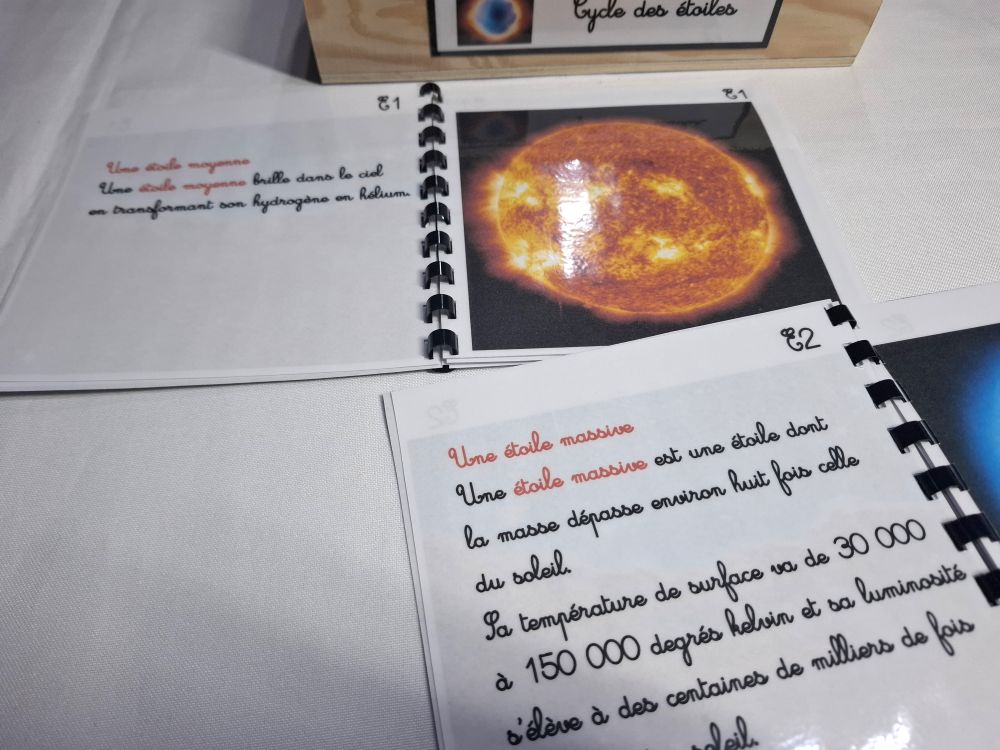 Cycle des étoiles
E1
Une étoile moyenne
Une étoile moyenne brille dans le ciel
en transformant son hydrogène en hélium.
E1
E2
Une étoile massive
Une étoile massive est une étoile dont
la masse dépasse environ huit fois celle
du soleil.
Sa température de surface va de 30 000
à 150 000 degrés kelvin et sa luminosité
s'élève à des centaines de milliers de fois
soleil.